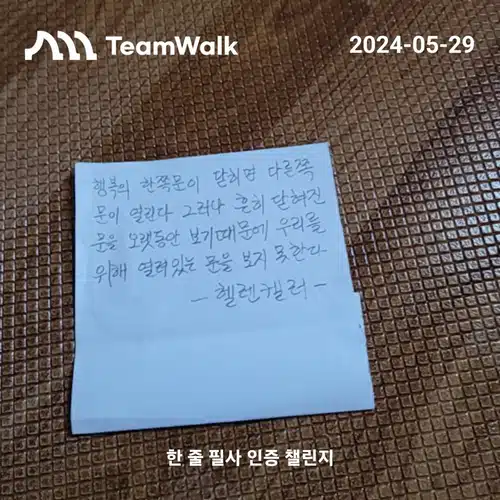 TeamWalk
2024-05-29
행복의 한쪽문이 닫히면 다른쪽
문이 열린다 그러나 흔히 닫혀진
문을 오랫동안 보기때문에 우리를
위해 열려있는 문을 보지 못한다
- 헬렌켈러 -
한 줄 필사 인증 챌린지